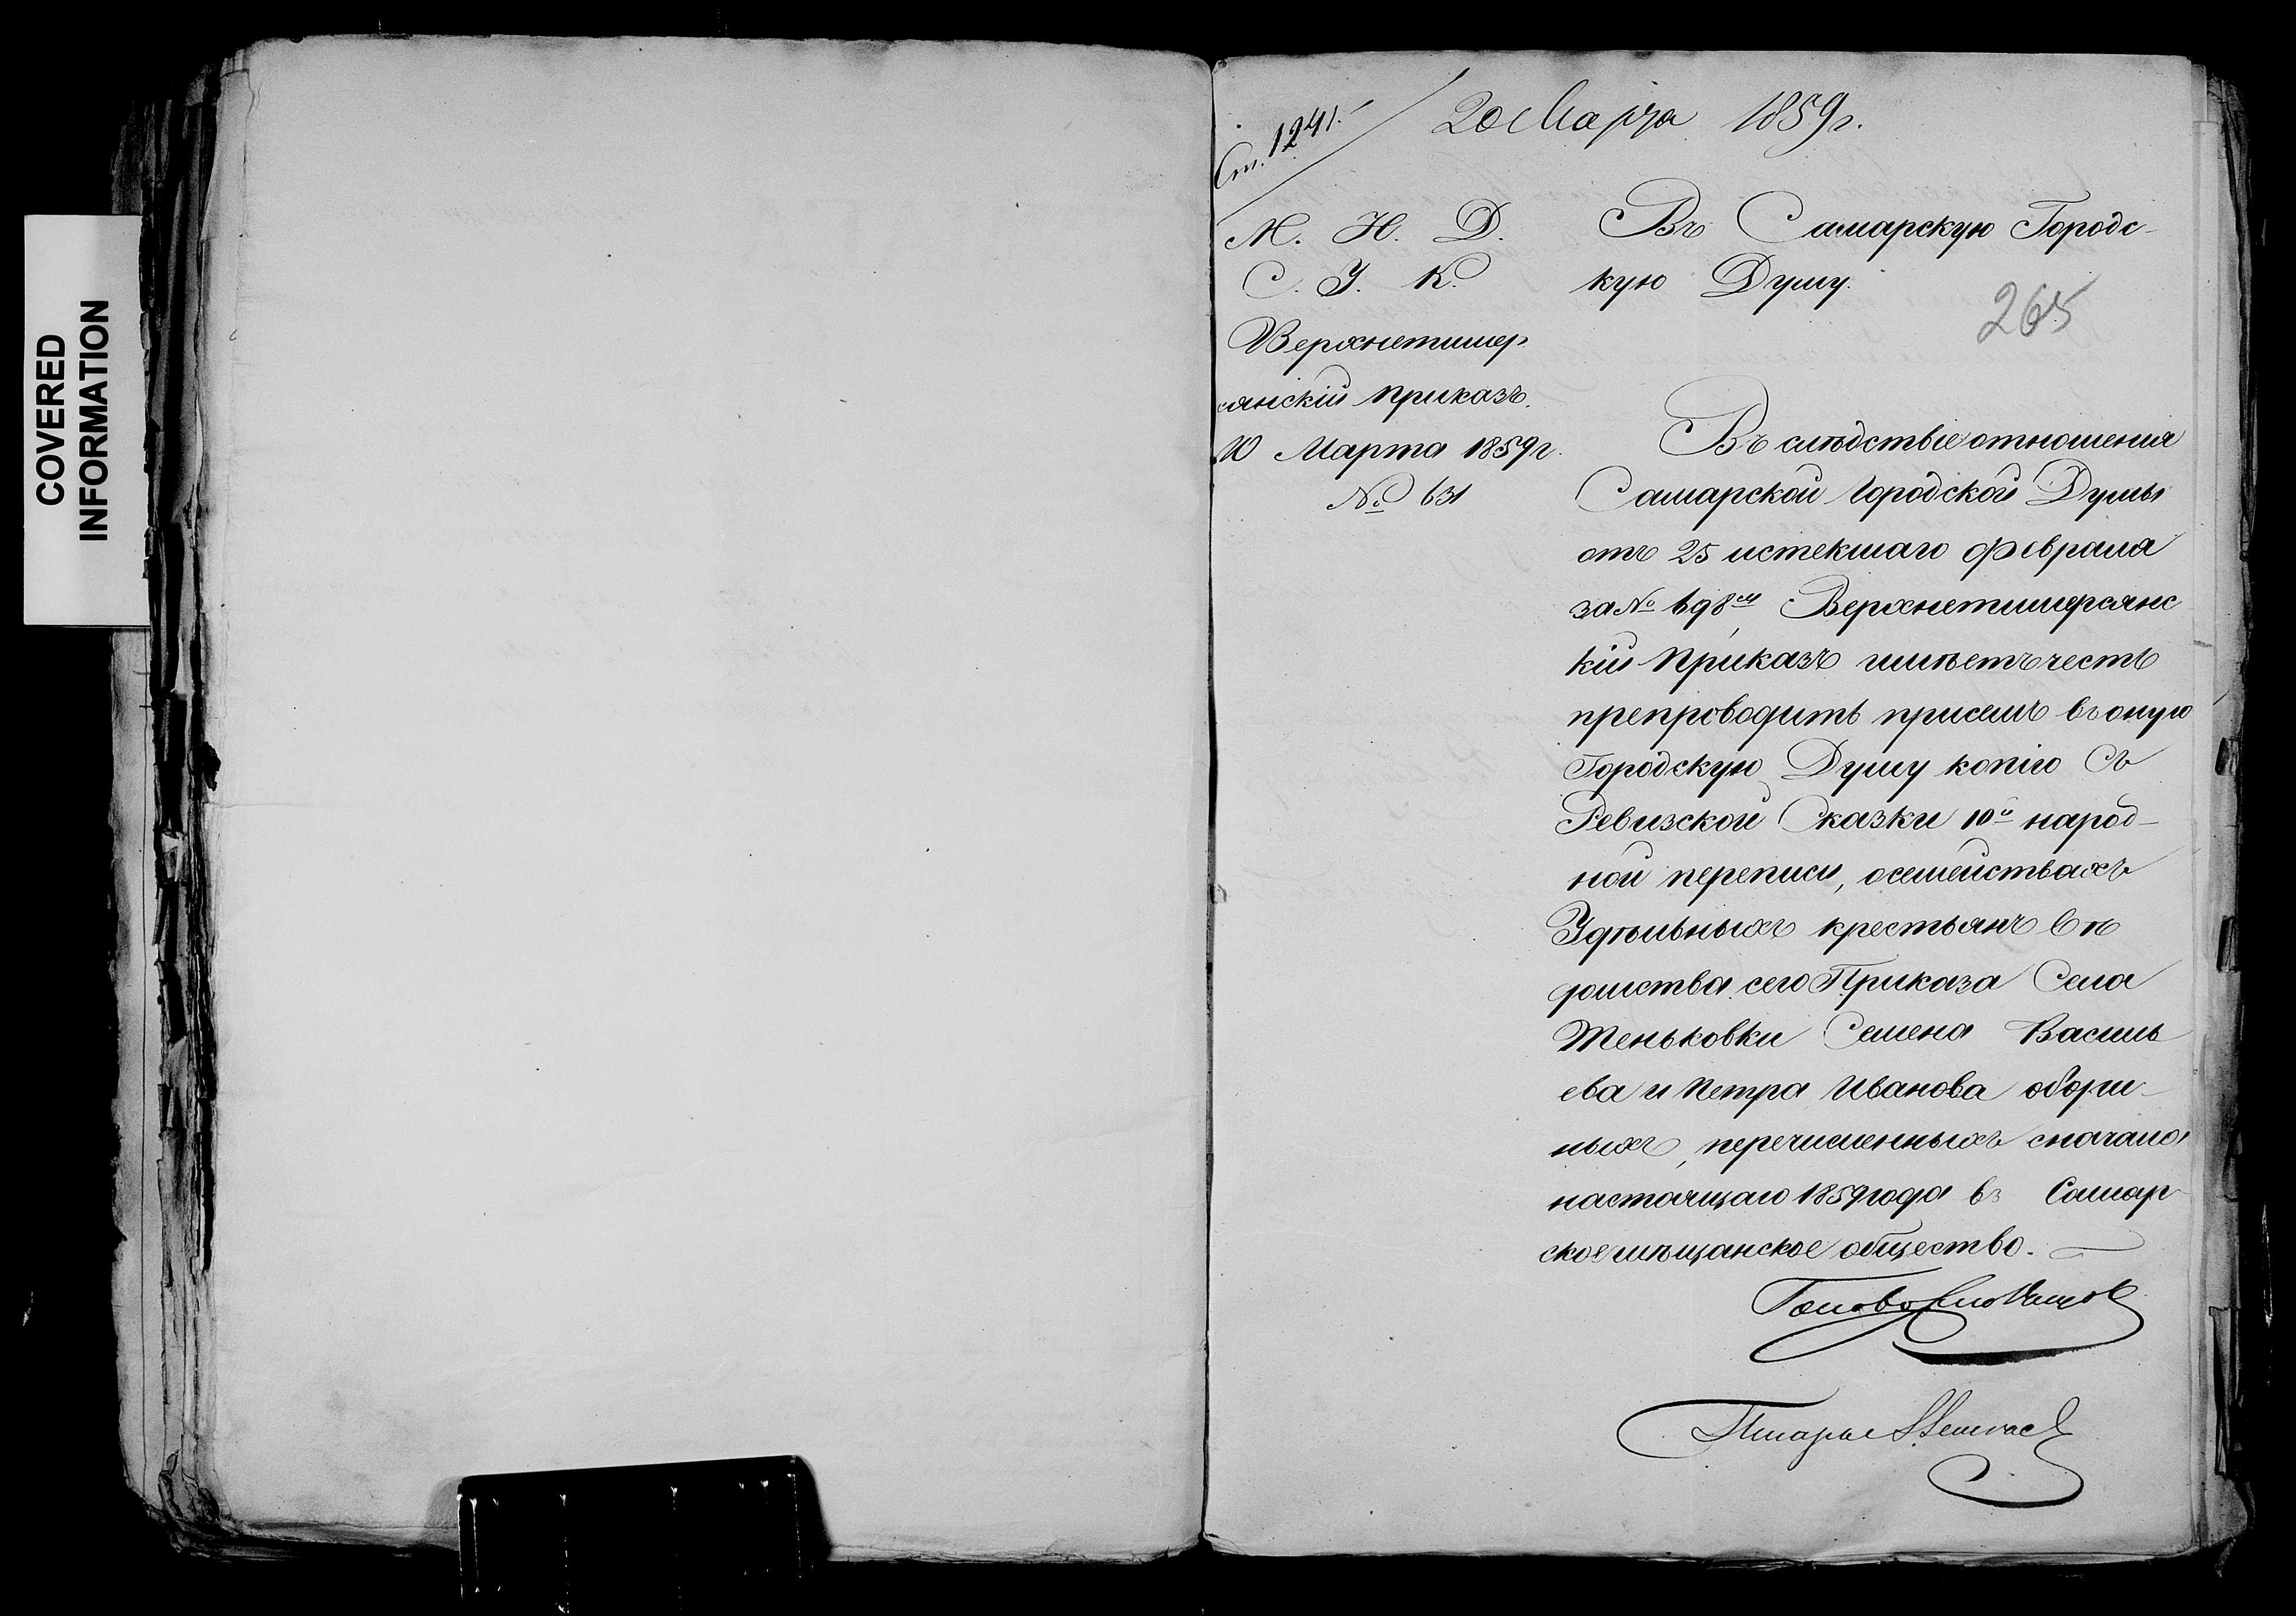 COVERED
INFORMATION
Ст. 1241.
20 Марта 1859 г.
М. И. Д.
С. У. К.
Верхнетимер
сянскій Приказъ.
10 Марта 1859 г.
№ 631
Въ Самарскую Городс-
кую Думу.
265
Въ слѣдствіе отношенія
Самарской Городской Думы
отъ 25 истекшаго Февраля
за № 698м Верхнетимерсянс
кій Приказъ имѣетъ честь
препроводить присемъ въ оную
Городскую Думу копію Съ
Ревизской Сказки 10й народ-
ной переписи, осемействахъ
Удѣльныхъ крестьянъ Вѣ
домства сего Приказа Села
Теньковки Семена Василь
ева и Петра Иванова обори-
ныхъ, перечисленныхъ сначала
настоящаго 1859 года въ Самар
ское мѣщанское общество.
Голова
Писарь